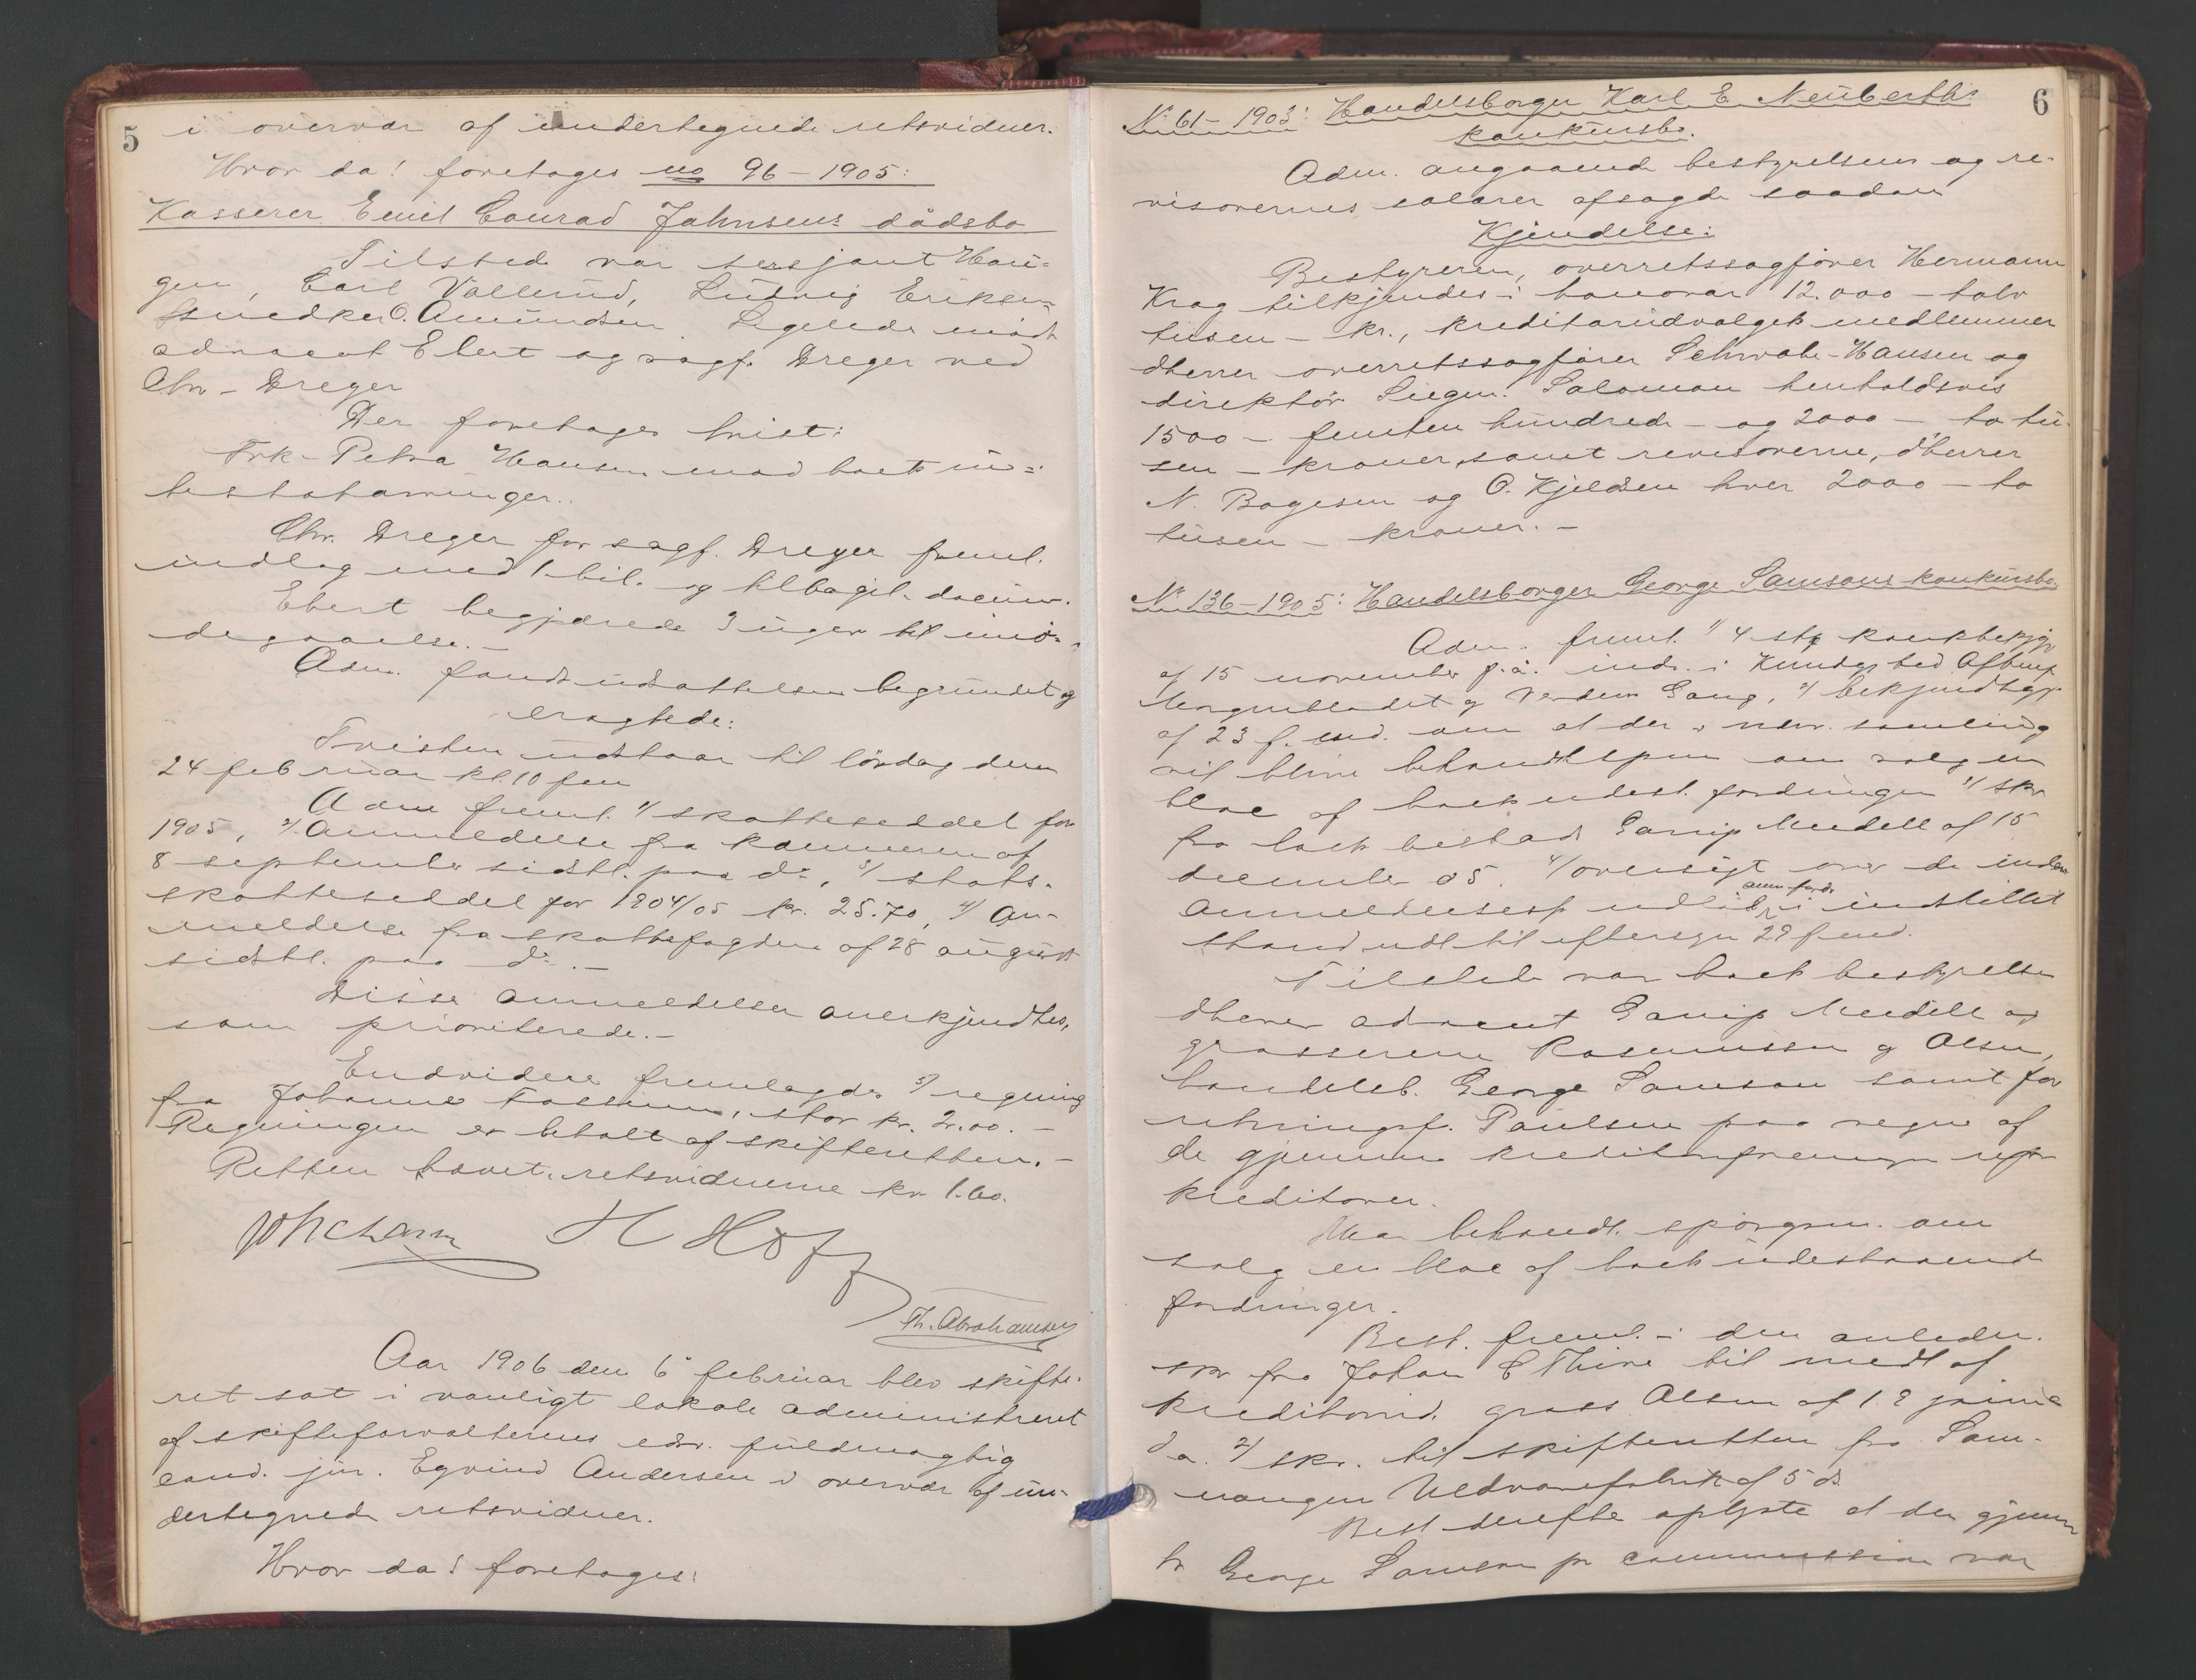 5
i overvær af undertegnede retsvidner.
Hvor da! foretages no 96 – 1905:
Kasserer Emil Conrad Jahnsens dödsbo
Tilstede var sersjant Hau-
gen, Carl Vallund, Ludvig Eriksen
snedker O. Amundsen Ligeledes mödte
advocat Ebert og sagf. Dreyer ved
Chr. Dreyer
Der foretages tvist:
Frk. Petra Hansen mod boets in-
testatarvinger.
Chr. Dreyer for sagf. Dreyer freml.
indlæg med 1 bil. og tilbagel. docum.
Ebert begjærede 3 uger til imö-
degaaelse. –
Adm. fandt udsættelsen begrundet og
eragtede:
Tvisten udstaar til lördag den
24 februar kl. 10 fm
Adm freml. 1/ skatteseddel for
1905, 2/ Anmeldelse fra kæmneren af
8 september sidstl. paa do, 3/ stats-
skatteseddel for 1904/05 kr. 25.70, 4/ An-
meldelse fra skattefogden af 28 august
sidstl. paa do. –
Disse anmeldelser anerkjendtes,
som prioriterede. –
Endvidere fremlagdes 5/ regning
fra Johannes Fossum, stor kr. 2.00. –
Regningen er betalt af skifteretten. –
Retten hævet. retsvidnerne kr 1.60.
H Hoff
Th. Abrahamsen
Aar 1906 den 6 februar blev skifte-
ret sat i vanligt lokale administreret
af skifteforvalterens edsv. fuldmægtig
cand. jur. Eyvind Andersen i overvær af un-
dertegnede retsvidner.
Hvor da! foretages:
6
No 61 – 1903: Handelsborger Karl E. Neuberths
konkursbo.
Adm. angaaende bestyrelsens og re-
visorernes salærer afsagde saadan
Kjendelse:
Bestyreren, overretssagförer Hermann
Krag tilkjendes i honorar 12.000 – tolv
tusen – kr., kreditorudvalgets medlemmer
dherrer overretssagförer Schwabe-Hansen og
direktör Siegm. Salomon henholdsvis
1500 – femten hundrede – og 2000 – to tu-
sen – kroner, samt revisorerne, dherrer
N. Bagesen og O. Kjeldsen hver 2000 – to
tusen – kroner. –
No 136 – 1905: Handelsborger George Samsons konkursbo
Adm. freml. 1/ 4 stk
af 15 november f.å. indr. i
Morgenbladet og Verdens Gang, 2/
af 23 f. md. om at der i nærv. samling
vil blive behandl spm om salg en
bloc af boets udest. fordringer 3/ skr
fra boets bestad Mendell af 15
december 05. 4/ oversigt over de inden
anmeldelsesf udlöb anm fordr i indstillet
stand udl til eftersyn 29 f md.
Tilstede var boets bestyrelse
dherrer advocat Mendell og
grossererne Rasmussen og Olsen,
handelsb. George Samson samt for
retningsf. Paulsen paa vegne af
de gjennem kreditorforeningen repr
kreditorer.
Man behandl. spörgsm. om
salg en bloc af boets udestaaende
fordringer.
Best. freml. i den anledn.
skr fra Johan C Thine til medl af
gross Olsen af 12 januar
d.a. 2/ skr. til skifteretten fra Sam-
nangen Uldvarefabrik af 5 ds
Best derefter oplyste at der gjennem
hr George Samson pr commission var